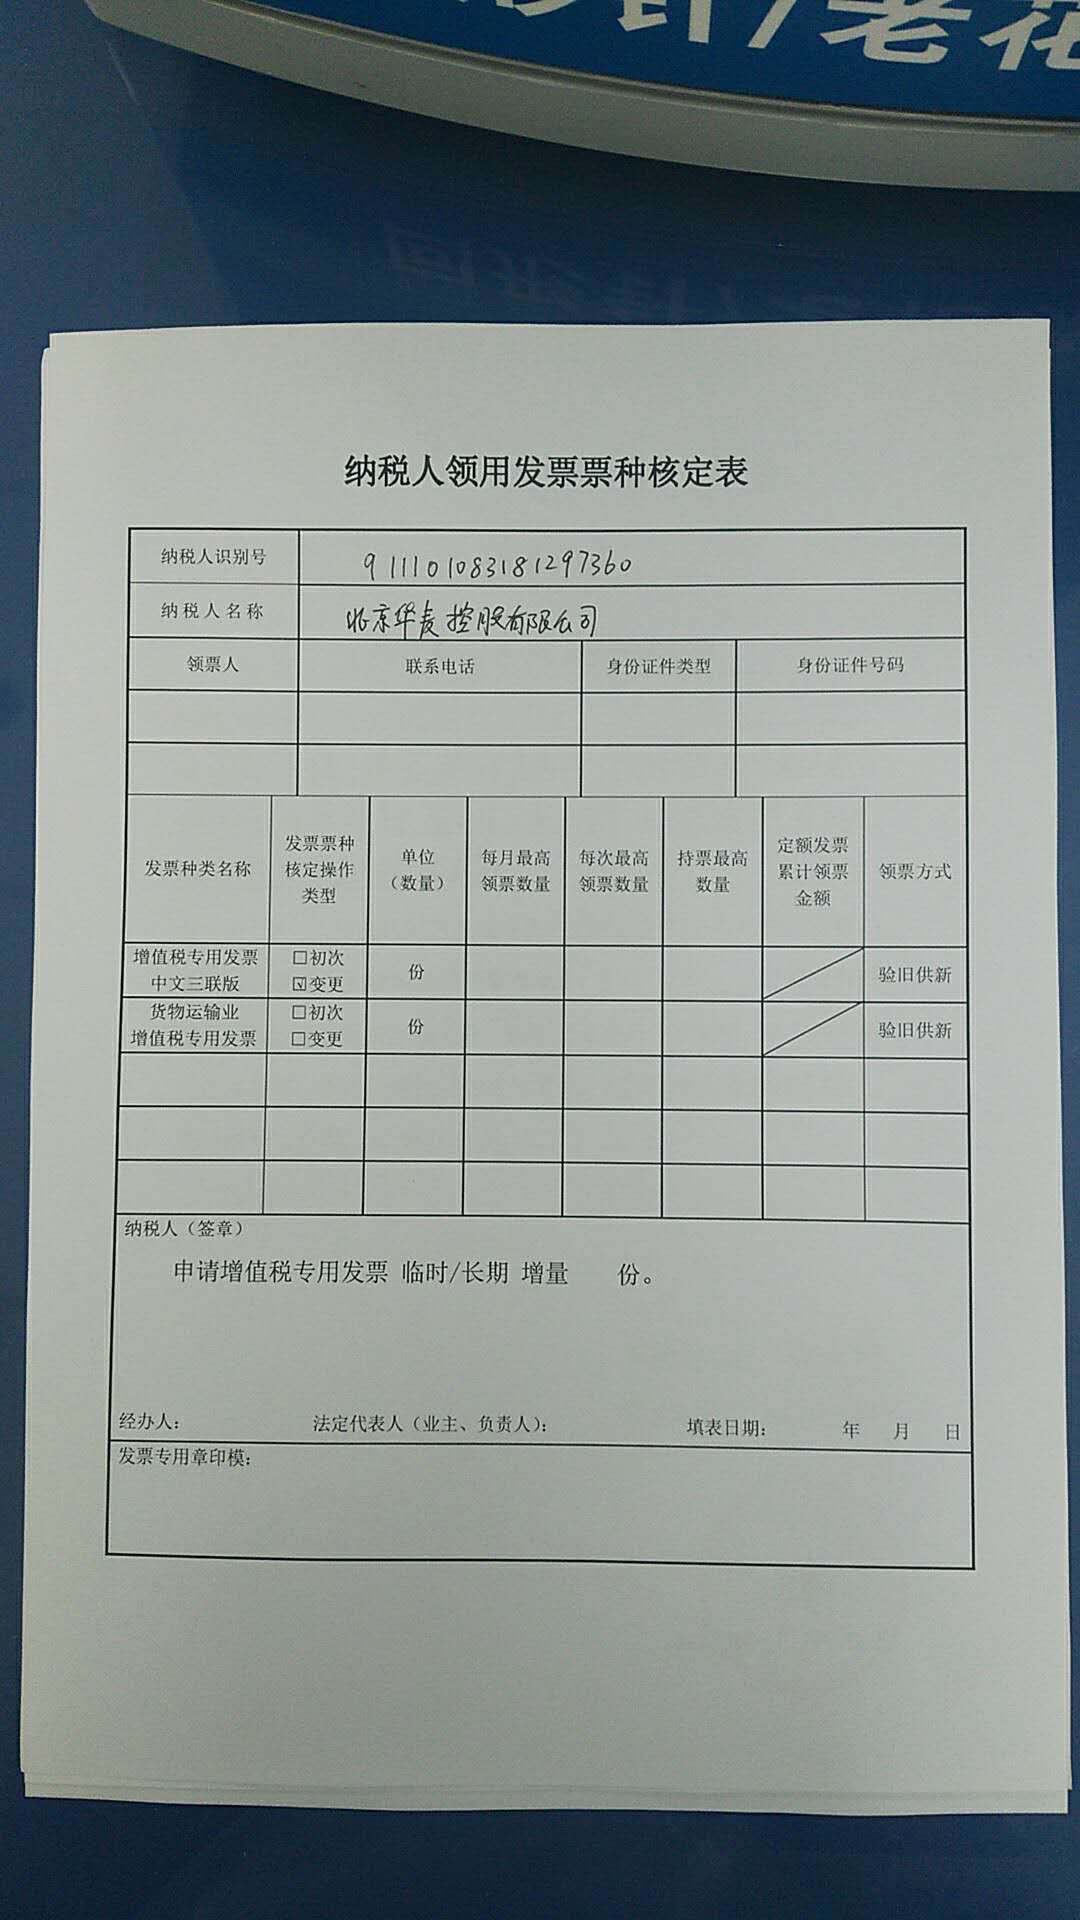 针/老花
纳税人领用发票票种核定表
纳税人识别号 911101083181297360
纳税人名称 北京华麦控股有限公司
领票人 联系电话 身份证件类型 身份证件号码
发票种类名称 发票票种核定操作类型 单位（数量） 每月最高领票数量 每次最高领票数量 持票最高数量 定额发票累计领票金额 领票方式
增值税专用发票中文三联版 □初次 ☑变更 份 验旧供新
货物运输业增值税专用发票 □初次 □变更 份 验旧供新
纳税人（签章）
申请增值税专用发票 临时/长期 增量 份。
经办人： 法定代表人（业主、负责人）： 填表日期： 年 月 日
发票专用章印模：